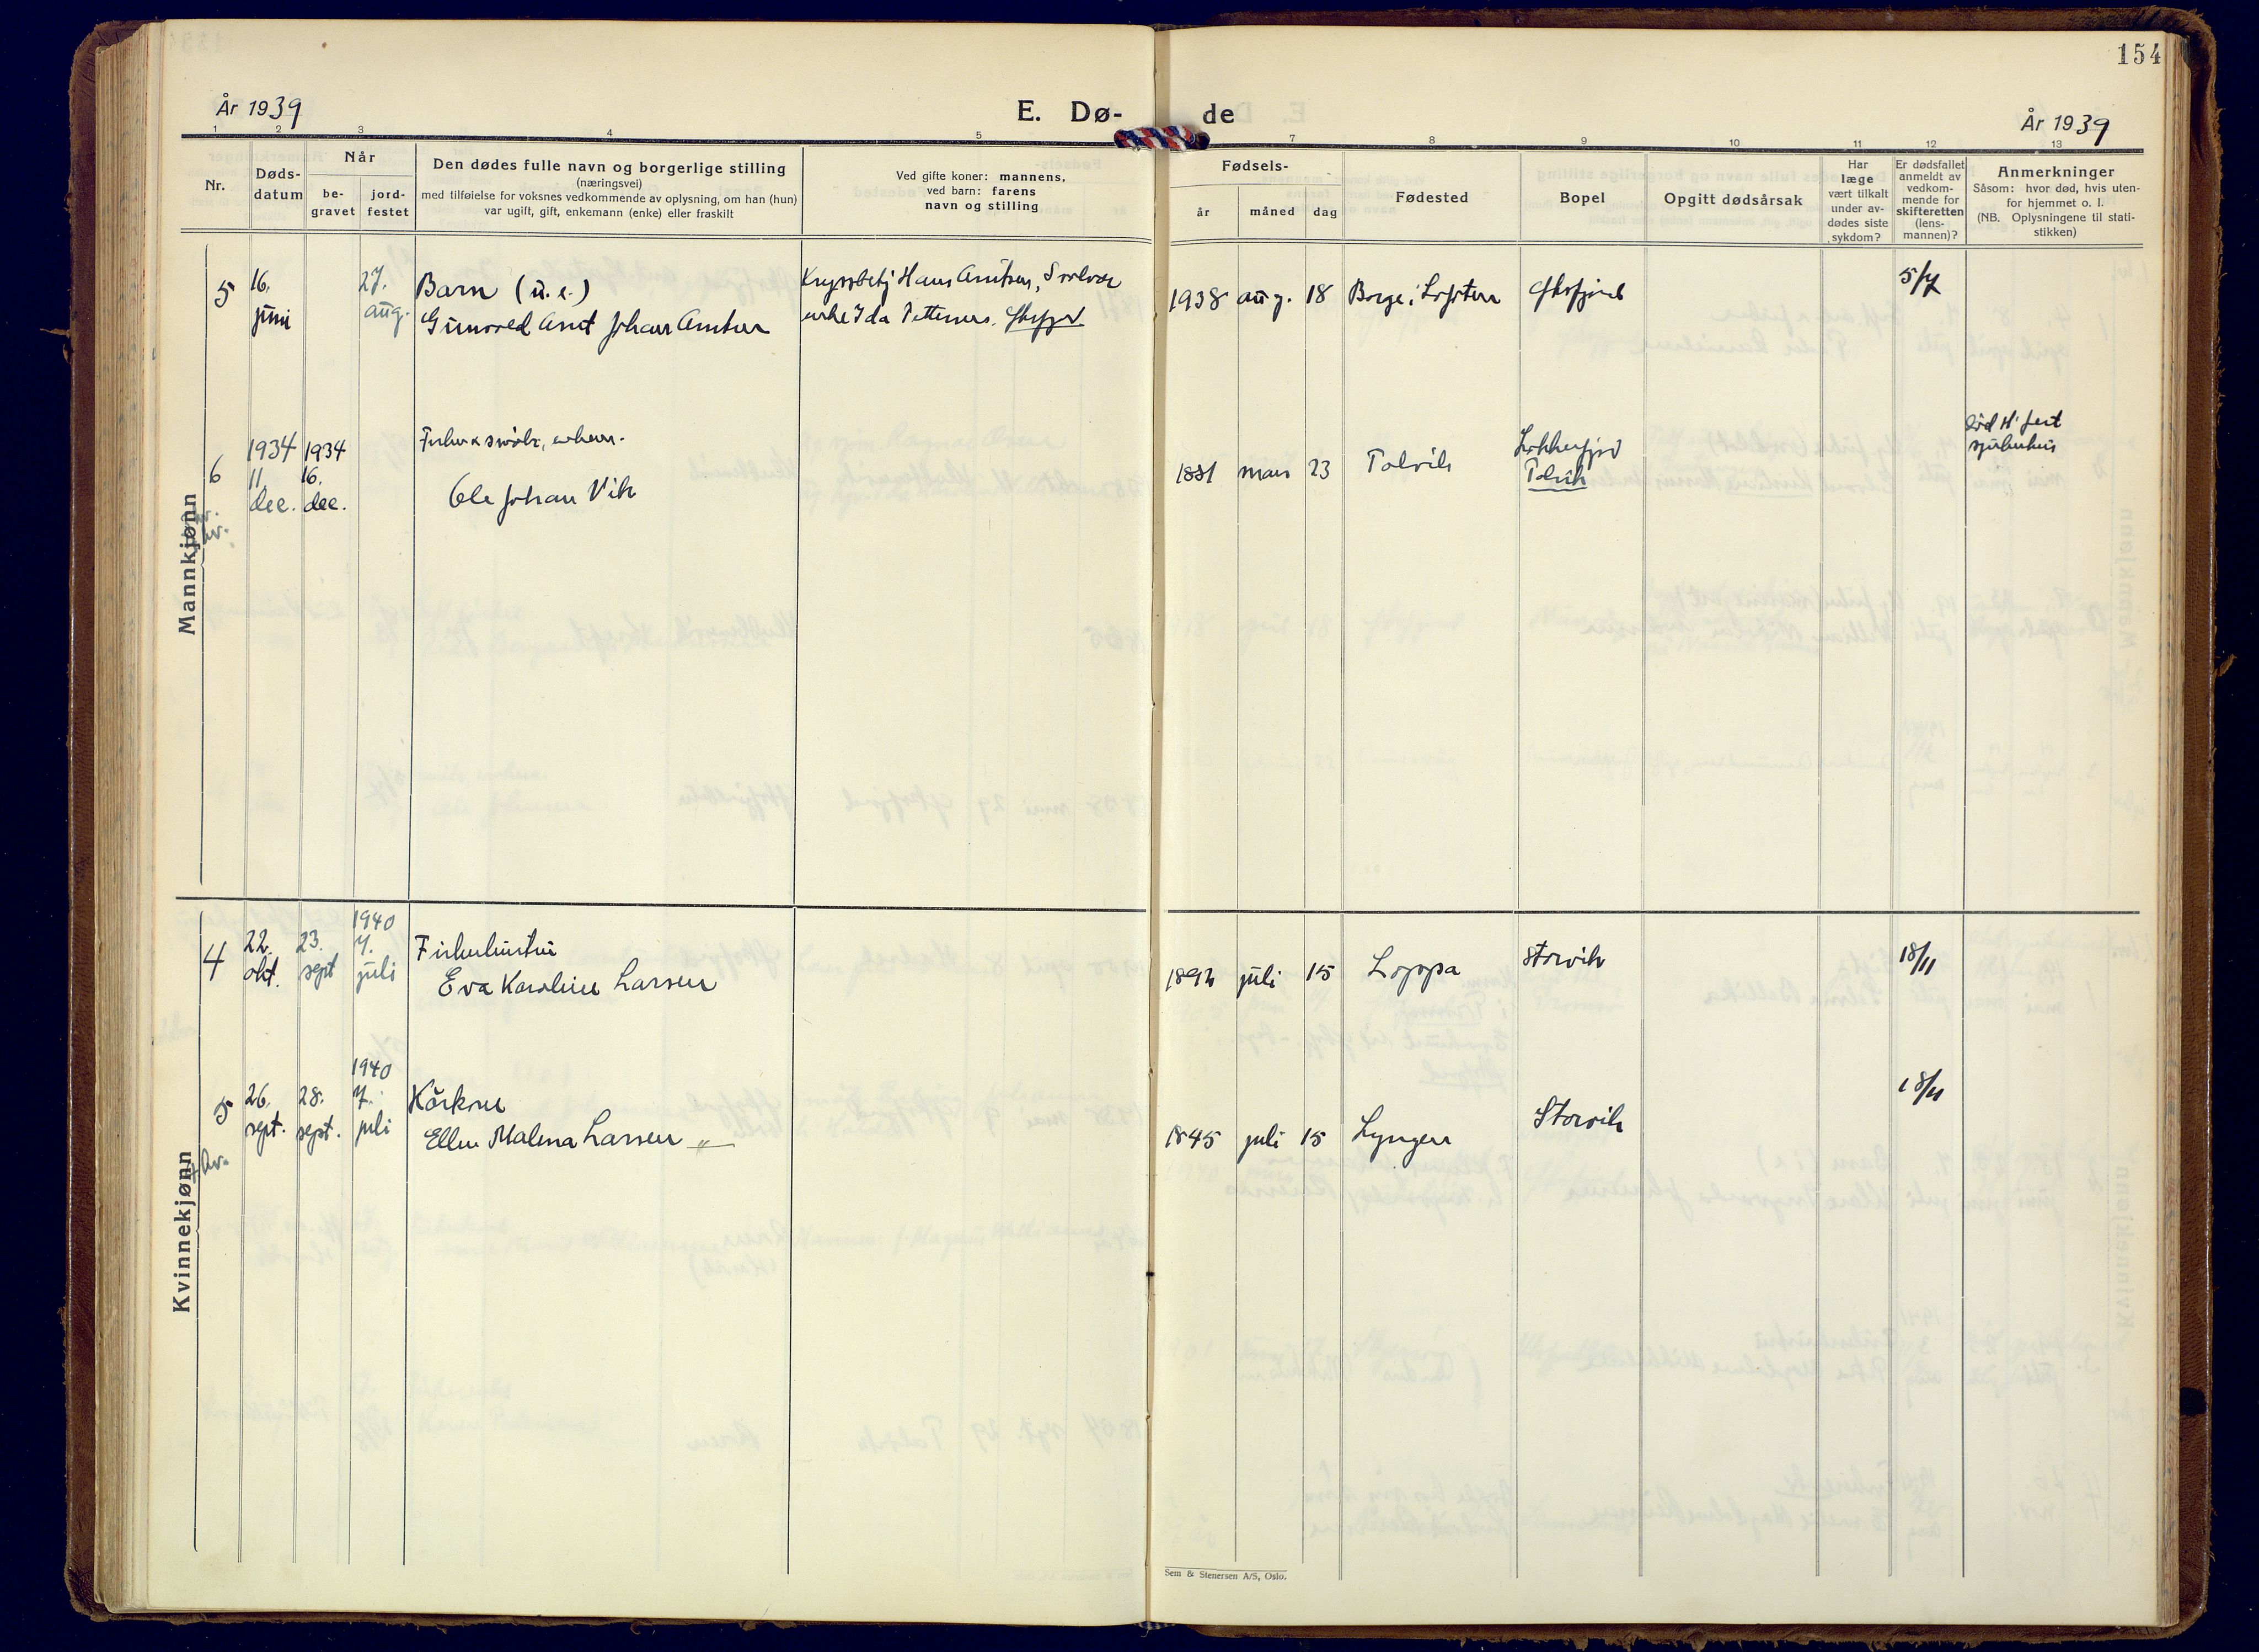 154
År 1939
E. Dø-
de
År 1939
1 2 3 4 5 7 8 9 10 11 12 13
Nr.
Døds-
datum
Når
be-
gravet
jord-
festet
Den dødes fulle navn og borgerlige stilling
(næringsvei)
med tilføielse for voksnes vedkommende av oplysning, om han (hun)
var ugift, gift, enkemann (enke) eller fraskilt
Ved gifte koner: mannens,
ved barn: farens
navn og stilling
Fødsels-
år
måned
dag
Fødested
Bopel
Opgitt dødsårsak
Har
læge
vært tilkalt
under av-
dødes siste
sykdom?
Er dødsfallet
anmeldt av
vedkom-
mende for
skifteretten
(lens-
mannen)?
Anmerkninger
Såsom: hvor død, hvis uten-
for hjemmet o. l.
(NB. Oplysningene til stati-
stikken)
Mannkjønn
5
16.
juni
27.
aug.
Barn (u. e.)
Arnt Johan
Hans
Ida
1938 aug. 18
Borge i Lofoten
5/7
6
1934
11.
dec.
1934
16.
dec.
Ole Johan Vik
1881 mars 23
Talvik
Talvik
Kvinnekjønn
4
22.
okt.
23.
sept
1940
7.
juli
Eva Karoline Larsen
juli 15
Loppa
Storvik
18/11
5
26.
sept.
28.
sept.
1940
7.
juli
Ellen Malena Larsen
1845 juli 15
Lyngen
Storvik
18/11
Sem & Stenersen A/S, Oslo.